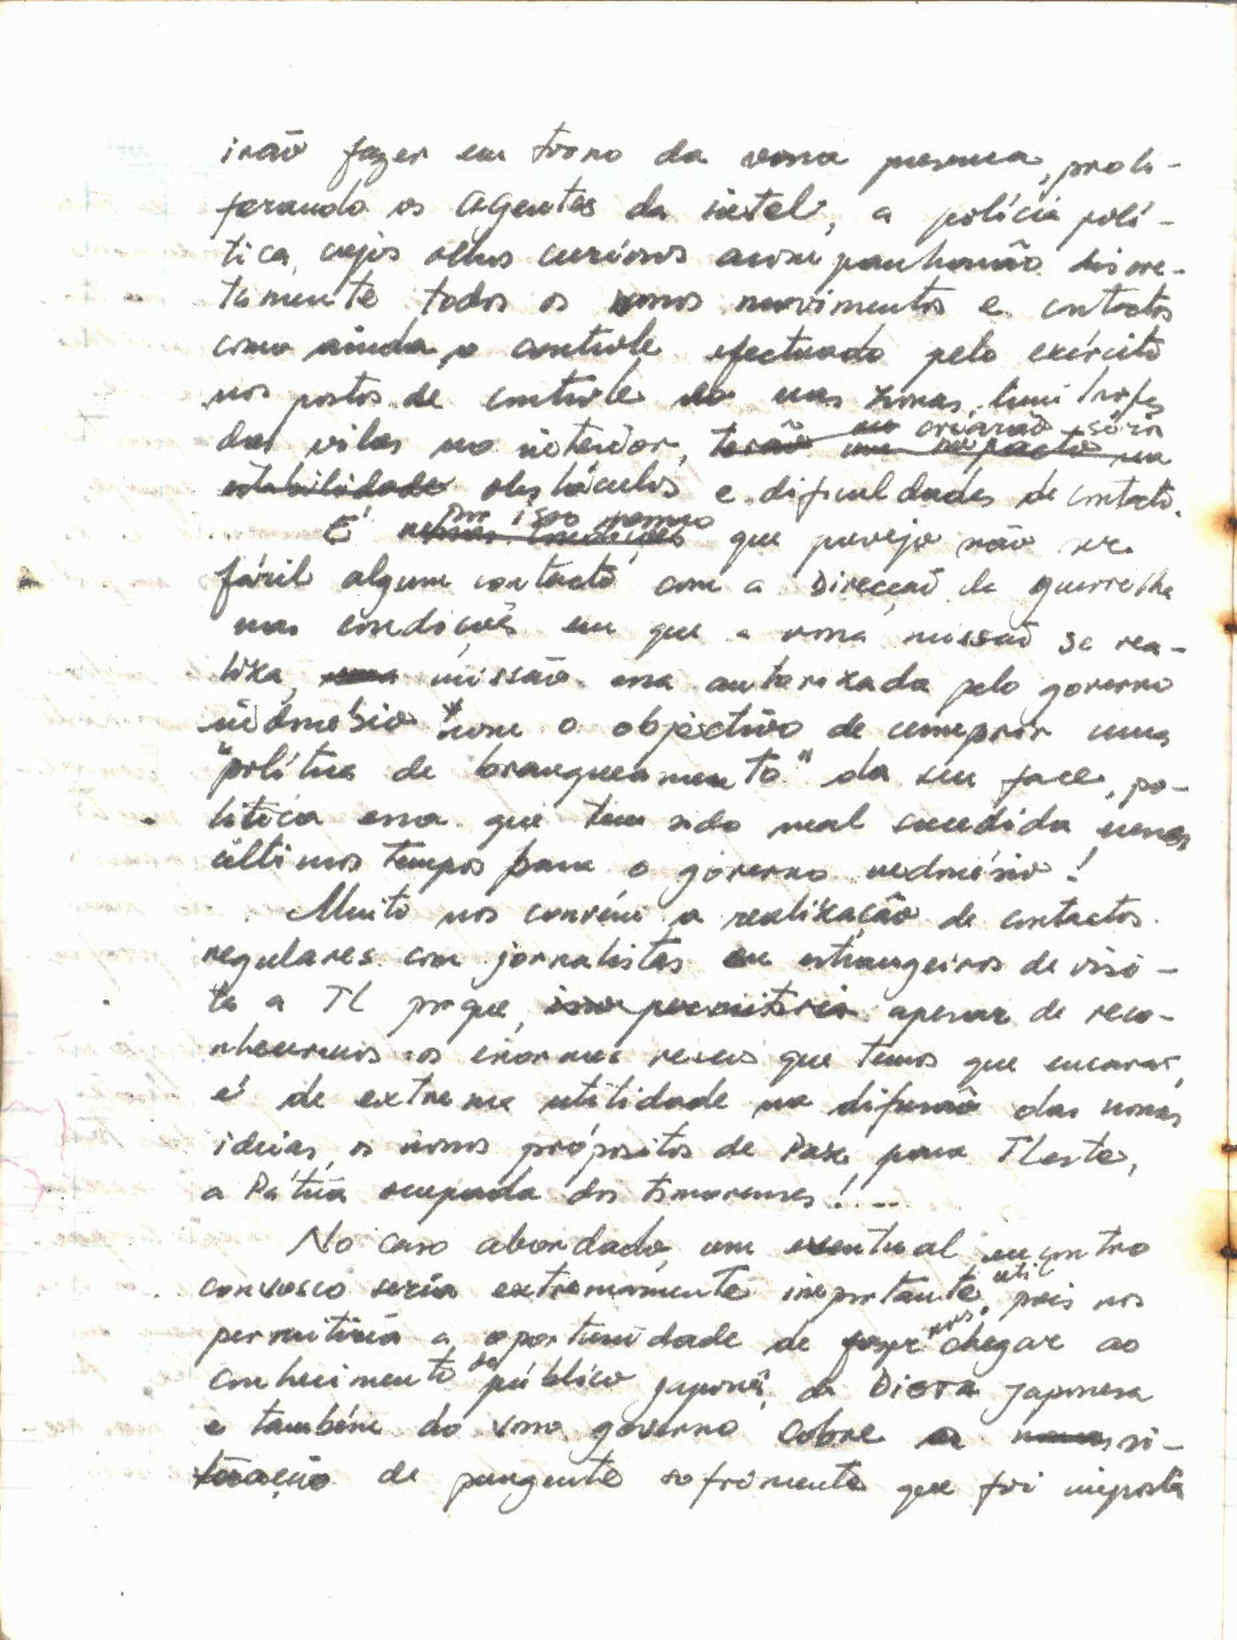 irão fazer em torno da vossa presença, proli-
ferando os agentes da intel, a polícia polí-
tica, cujos olhos curiosos acompanharão discre-
tamente todos os vossos movimentos e contactos
como ainda, o controle efectuado pelo exército
nos postos de controle nas zonas limítrofes
das vilas no interior, criarão sérios
obstáculos e dificuldades de contacto.
É por isso mesmo que prevejo não ser
fácil algum contacto com a Direcção da guerrilha
nas condições em que a vossa missão se rea-
liza, missão essa autorizada pelo governo
indonésio com o objectivo de cumprir uma
"política de branqueamento" da sua face, po-
lítica essa que tem sido mal sucedida nos
últimos tempos para o governo indonésio!
Muito nos convém a realização de contactos
regulares com jornalistas estrangeiros de visi-
ta a TL porque, apesar de reco-
nhecermos os enormes riscos que temos que encarar,
é de extrema utilidade na difusão das nossas
ideias, os nossos propósitos de Paz para TLeste,
a Pátria ocupada dos timorenses!...
No caso abordado, um eventual encontro
convosco seria extremamente importante, útil pois nos
permitiria a oportunidade de fazer chegar ao
conhecimento do público japonês, da Dieta Japonesa
e também do vosso governo sobre a si-
tuação de pungente sofrimento que foi imposta